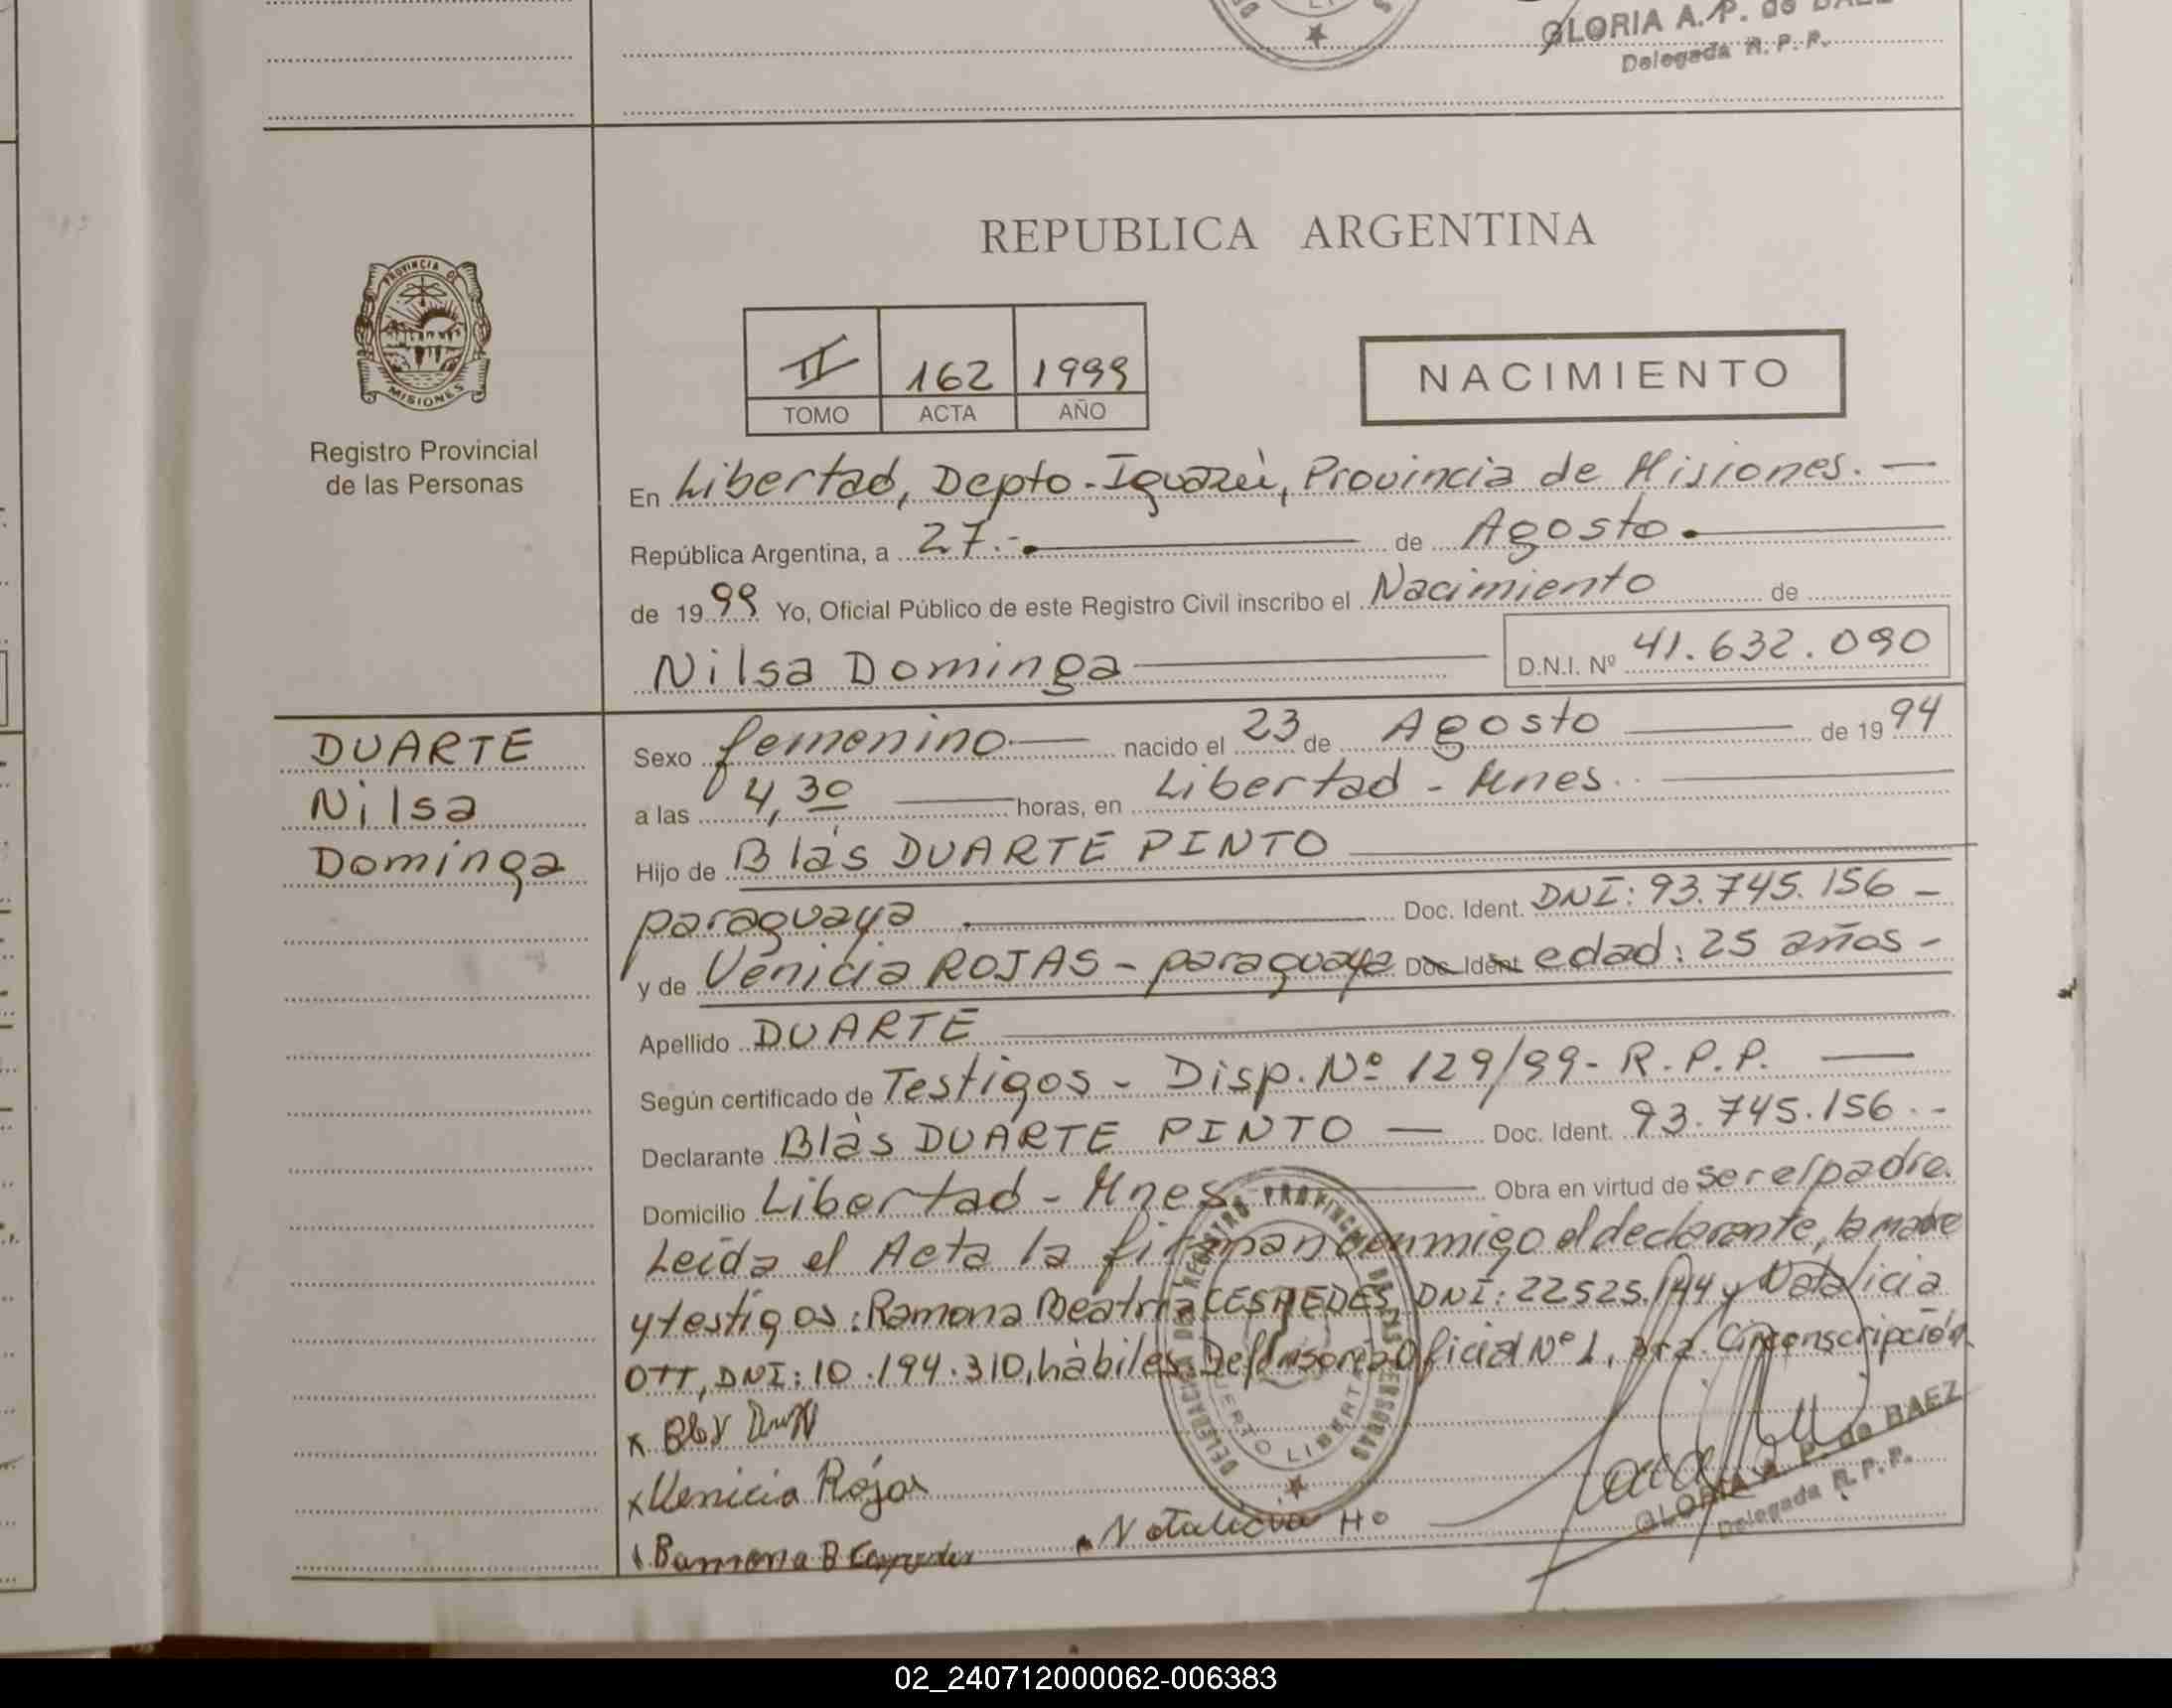 GLORIA A. P. de BAEZ
Delegada R. P. P.
REPUBLICA ARGENTINA
PROVINCIA DE
MISIONES
Registro Provincial
de las Personas
II 162 1999
TOMO ACTA AÑO
NACIMIENTO
En Libertad, Depto - Iguazú, Provincia de Misiones. —
República Argentina, a 27.- de Agosto.
de 1999 Yo, Oficial Público de este Registro Civil inscribo el Nacimiento de
Nilsa Dominga D.N.I. Nº 41.632.090
DUARTE
Nilsa
Dominga
Sexo femenino — nacido el 23 de Agosto de 1994
a las 4,30 horas, en Libertad - Mnes.
Hijo de Blás DUARTE PINTO
paraguaya Doc. Ident. DNI: 93.745.156 -
y de Venicia ROJAS - paraguaya Doc. Ident edad: 25 años -
Apellido DUARTE
Según certificado de Testigos - Disp. Nº 129/99 - R.P.P. —
Declarante Blás DUARTE PINTO — Doc. Ident. 93.745.156.-
Domicilio Libertad - Mnes Obra en virtud de ser el padre.
Leída el Acta la firman conmigo el declarante, la madre
y testigos: Ramona Beatriz CESPEDES, DNI: 22525.144 y Natalicia
OTT, DNI: 10.194.310, hábiles. Defensoría Oficial Nº 1, 3ra. Circonscripción
x
x Venicia Rojas
Ramona B
Natalicia
DELEGACION DE REGISTRO PROVINCIAL DE LAS PERSONAS
PUERTO LIBERTAD
GLORIA A. P. de BAEZ
Delegada R. P. P.
02_240712000062-006383